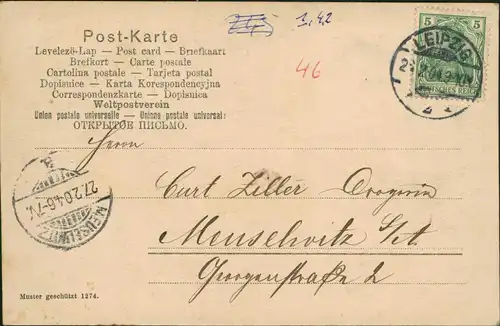 1,42
46
Post-Karte
Levelező-Lap — Post card — Briefkaart
Brefkort — Carte postale
Cartolina postale — Tarjeta postal
Dopisnice — Karta Korespondencyjna
Correspondenzkarte — Dopisnica
Weltpostverein
Union postale universelle — Unione postale universale
ОТКРЫТОЕ ПИСЬМО.
5 5
LEIPZIG
Herrn
Curt Ziller Drogerie
Meuselwitz S/A.
Georgenstraße 2
27.2.04.6-7N.
MEUSELWITZ
Muster geschützt 1274.